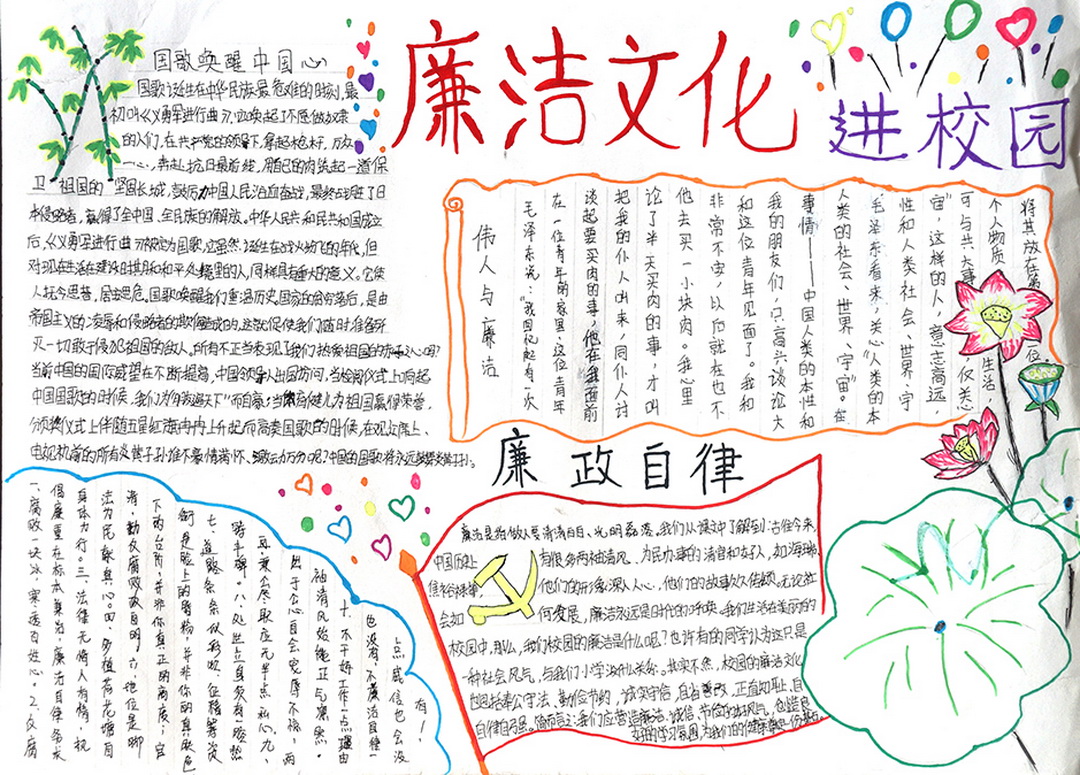 廉洁文化
进校园
国歌唤醒中国心
国歌诞生在中华民族最危难的时刻，最
初叫《义勇军进行曲》，它唤起了不愿做奴隶
的人们，在共产党的领导下，拿起枪杆，万众
一心，奔赴抗日最前线，用自己的肉筑起一道保
卫“祖国的”坚固长城，鼓励中国人民浴血奋战，最终战胜了日
本侵略者，赢得了全中国、全民族的解放。中华人民共和民共和国成立
后，《义勇军进行曲》被定为国歌，它虽然诞生在战火纷飞的年代，但
对现在生活在建设时期和和平义里的人，同样具有重大的意义。它使
人抚今思昔，居安思危。国歌唤醒我们重温历史，国家的贫穷落后，是由
帝国主义的凌辱和侵略者的欺侮造成的，这就促使我们随时准备歼
灭一切敢于侵犯祖国的敌人。所有不正当表现了我们热爱祖国的赤子之心吗？
当前中国的国际威望在不断提高，中国领导人出国访问，当检阅仪式上响起
中国国歌的时候，我们为有孩遍天下”而自豪；当体育健儿为祖国赢得荣誉，
颁奖仪式上伴随五星红旗冉冉上升起而高奏国歌的时候，在观众席上、
电视机前的所有炎黄子孙谁不豪情满怀、激动万分呢？中国的国歌将永远
伟人与廉洁
毛泽东说：“我回忆起有一次
在一位青年的家里，这位青年
谈起要买肉的事，他在我面前
把我的仆人叫来，同仆人讨
论了半天买肉的事，才叫
他去买一小块肉。我心里
非常不安，以后就在也不
和这位青年见面了。我和
我的朋友们，只高兴谈论大
事情——中国人类的本性和
人类的社会、世界、宇宙”。在
毛泽东看来，关心“人类的本
性和人类社会、世界、宇
宙”，这样的人，意志高远，
可与共大事 仅关心
个人物质 生活，
将其放在第 位
廉政自律
廉洁是指做人要清清白白、光明磊落。我们从课文中了解到：古往今来，
中国历史上 有很多两袖清风、为民办事的清官和好人，如海瑞、
焦裕禄等 他们的形象深入人心，他们的故事久传颂。无论社
会如 何发展，廉洁永远是时代的呼唤。我们生活在美丽的
校园中，那么，我们校园的廉洁是什么呢？也许有的同学认为这只是
一种社会风气，与我们小学没什么关系。其实不然，校园的廉洁文化
也包括奉公守法、勤俭节约、诚实守信、自省善改、正直知耻、自
自律自强。简而言之：我们应营造廉洁、诚信、节俭的好风气，创造良
好的学习氛围，为我们的健康尽一份努力。
一、腐败一块冰，寒透百姓心。2、反腐
倡廉重在标本兼治，廉洁自律务求
身体力行。三、法律无情人有情，执
法为民献真心。四、多植荷花塘自
清，勤反腐败政自明。六、地位是脚
下的台阶，并非你真正的高度；官
衔是脸上的脂粉，并非你的真正色
七、道路条条似彩虹，征稽筹资
踏车驰。八、处世立身须有一腔热
血，秉公办取应无半点私心。九、
出于公心自会宽厚不惊，两
袖清风始绝正气凛然。
十、不干好工作一点理由
也没有，不廉洁自律一
点威信也会没
有！